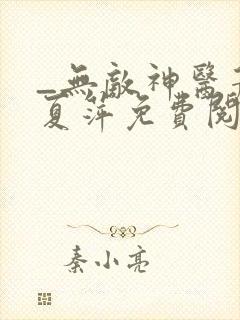 _無敵神醫
夏萍免費閱
秦小亮